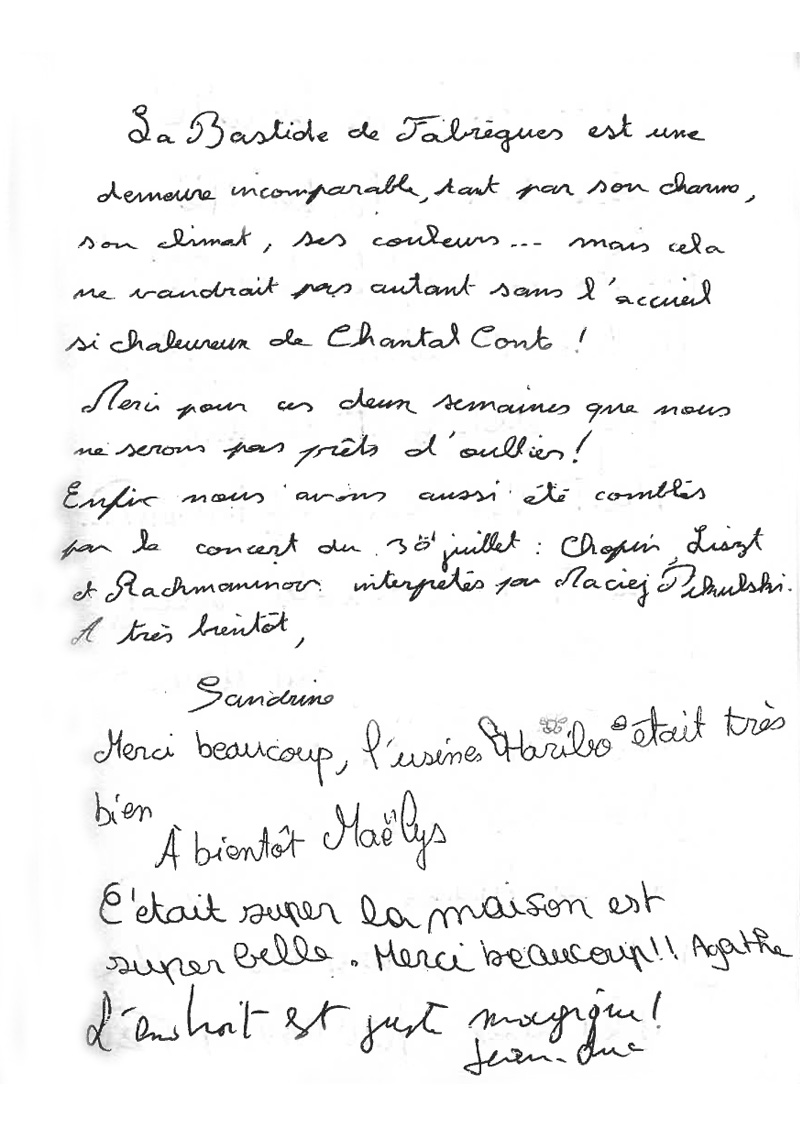 La Bastide de Fabrègues est une
demeure incomparable, tant par son charme,
son climat, ses couleurs... mais cela
ne vaudrait pas autant sans l'accueil
si chaleureux de Chantal Conte !
Merci pour ces deux semaines que nous
ne serons pas prêts d'oublier !
Enfin nous avons aussi été comblés
par le concert du 30 juillet : Chopin, Liszt
et Rachmaninov interprétés par Maciej Pikulski.
A très bientôt,
Sandrine
Merci beaucoup, l'usines Haribo était très
bien
À bientôt Maëlys
C'était super la maison est
super belle. Merci beaucoup!! Agathe
L'endroit est juste magique !
Jean-Luc